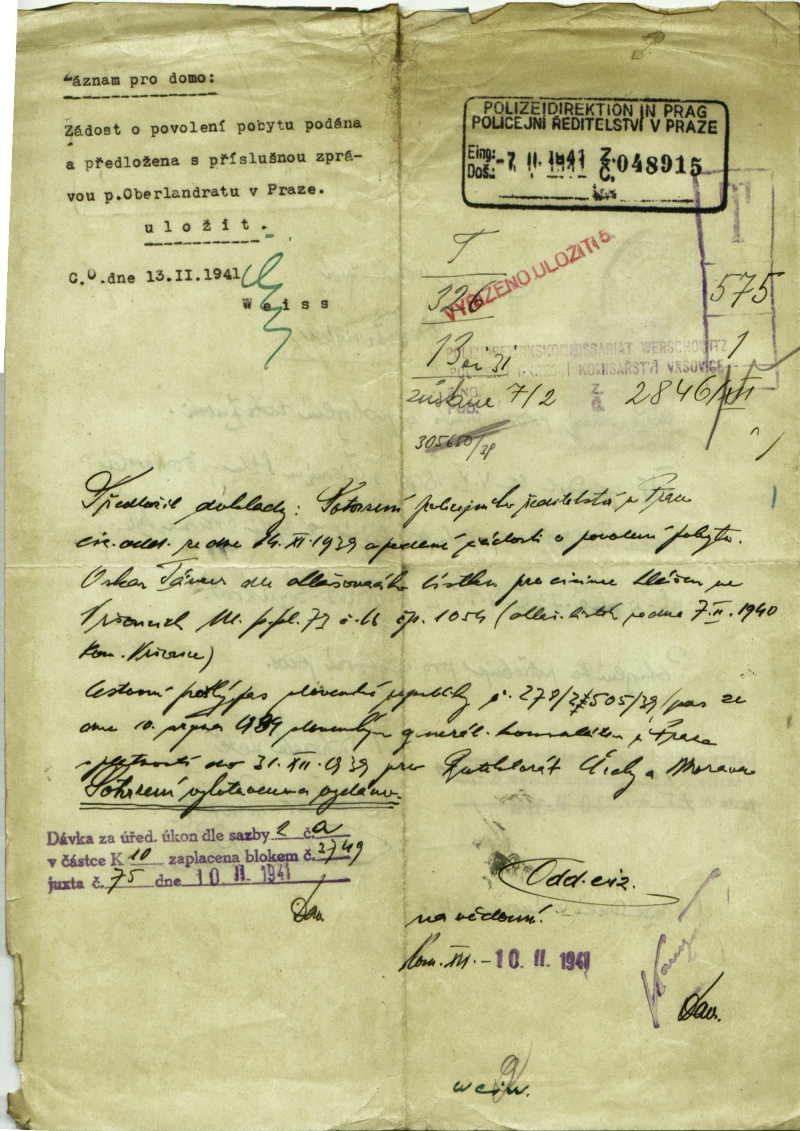 Záznam pro domo:
Žádost o povolení pobytu podána
a předložena s příslušnou zprá-
vou p.Oberlandratu v Praze.
uložit.
C.O.dne 13.II.1941
Weiss
POLIZEIDIREKTION IN PRAG
POLICEJNÍ ŘEDITELSTVÍ V PRAZE
Eing: Z.
Doš.: -7. II. 1941 Č. 048915
T
VYŘÍZENO ULOŽITI
326
575
13
1
KOMMISSARIAT WERSCHOWITZ
KOMISAŘSTVÍ VRŠOVICE
7/2 Z. Č. 2846/
Předložil doklady: Potvrzení policejního ředitelství v Praze
ciz. odd. ze dne 14.XII.1939 o podání žádosti o povolení pobytu.
Oskar dle ohlašovacího lístku hlášen ve
Vršovicích čp. 1054 (ohlaš. lístek ze dne 7.II.1940
kom. Vršovice)
Cestovní pas slovenské republiky č. 278/ 505/39/pas ze
dne 10. srpna 1939 slovenským generál. konsulátem v Praze
s platností do 31.XII.1939 pro Protektorát Čechy a Morava
Potvrzení vyhotoveno a vydáno.
Dávka za úřed. úkon dle sazby 2 č. a
v částce K 10 zaplacena blokem č. 2749
juxta č. 75 dne 10 II. 1941
Odd. ciz.
na vědomí.
Kom. XIII. -10. II. 1941